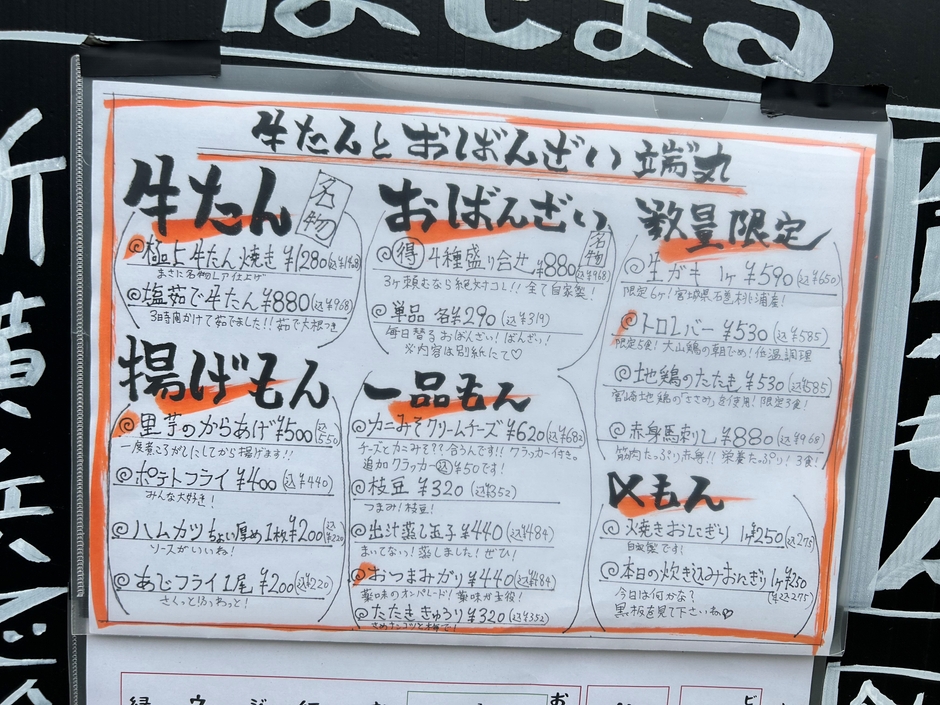 はじまる
牛たんとおばんざい 端丸
牛たん 名物
極上牛たん焼き ¥1280(込¥1408)
まさに名物レア仕上げ
塩茹で牛たん ¥880(込¥968)
3時間かけて茹でました!!茹で大根つき
揚げもん
里芋のからあげ ¥500(込550)
一度煮ころがしにしてから揚げます!!
ポテトフライ ¥400(込¥440)
みんな大好き!
ハムカツちょい厚め1枚 ¥200(込¥220)
ソースがいいね!
あじフライ1尾 ¥200(込¥220)
さくっとふわっと!
おばんざい 名物
得 4種盛り合せ ¥880(込¥968)
3ヶ頼むなら絶対コレ!! 全て自家製!
単品 各¥290(込¥319)
毎日替るおばんざい!ばんざい!
※内容は別紙にて♡
一品もん
カニみそクリームチーズ ¥620(込¥682)
チーズとカニみそ??合うんです!! クラッカー付き。
追加クラッカー込¥50です!
枝豆 ¥320(込¥352)
つまみ!枝豆!
出汁蒸し玉子 ¥440(込¥484)
まいてない!蒸しました!ぜひ!
おつまみガリ ¥440(込¥484)
薬味のオンパレード!薬味が主役!
たたききゅうり ¥320(込¥352)
数量限定
生ガキ 1ヶ ¥590(込¥650)
限定6ヶ!宮城県石巻桃浦産!
トロレバー ¥530(込¥585)
限定5食!大山鶏の朝びめ!低温調理
地鶏のたたき ¥530(込¥585)
宮崎地鶏の「ささみ」を使用!限定3食!
赤身馬刺し ¥880(込¥968)
筋肉たっぷり赤身!! 栄養たっぷり!3食!
〆もん
焼きおにぎり 1ヶ¥250(込275)
自家製です!
本日の炊き込みおにぎり 1ヶ¥250
(込¥275)
今日は何かな?
黒板を見て下さいね♡